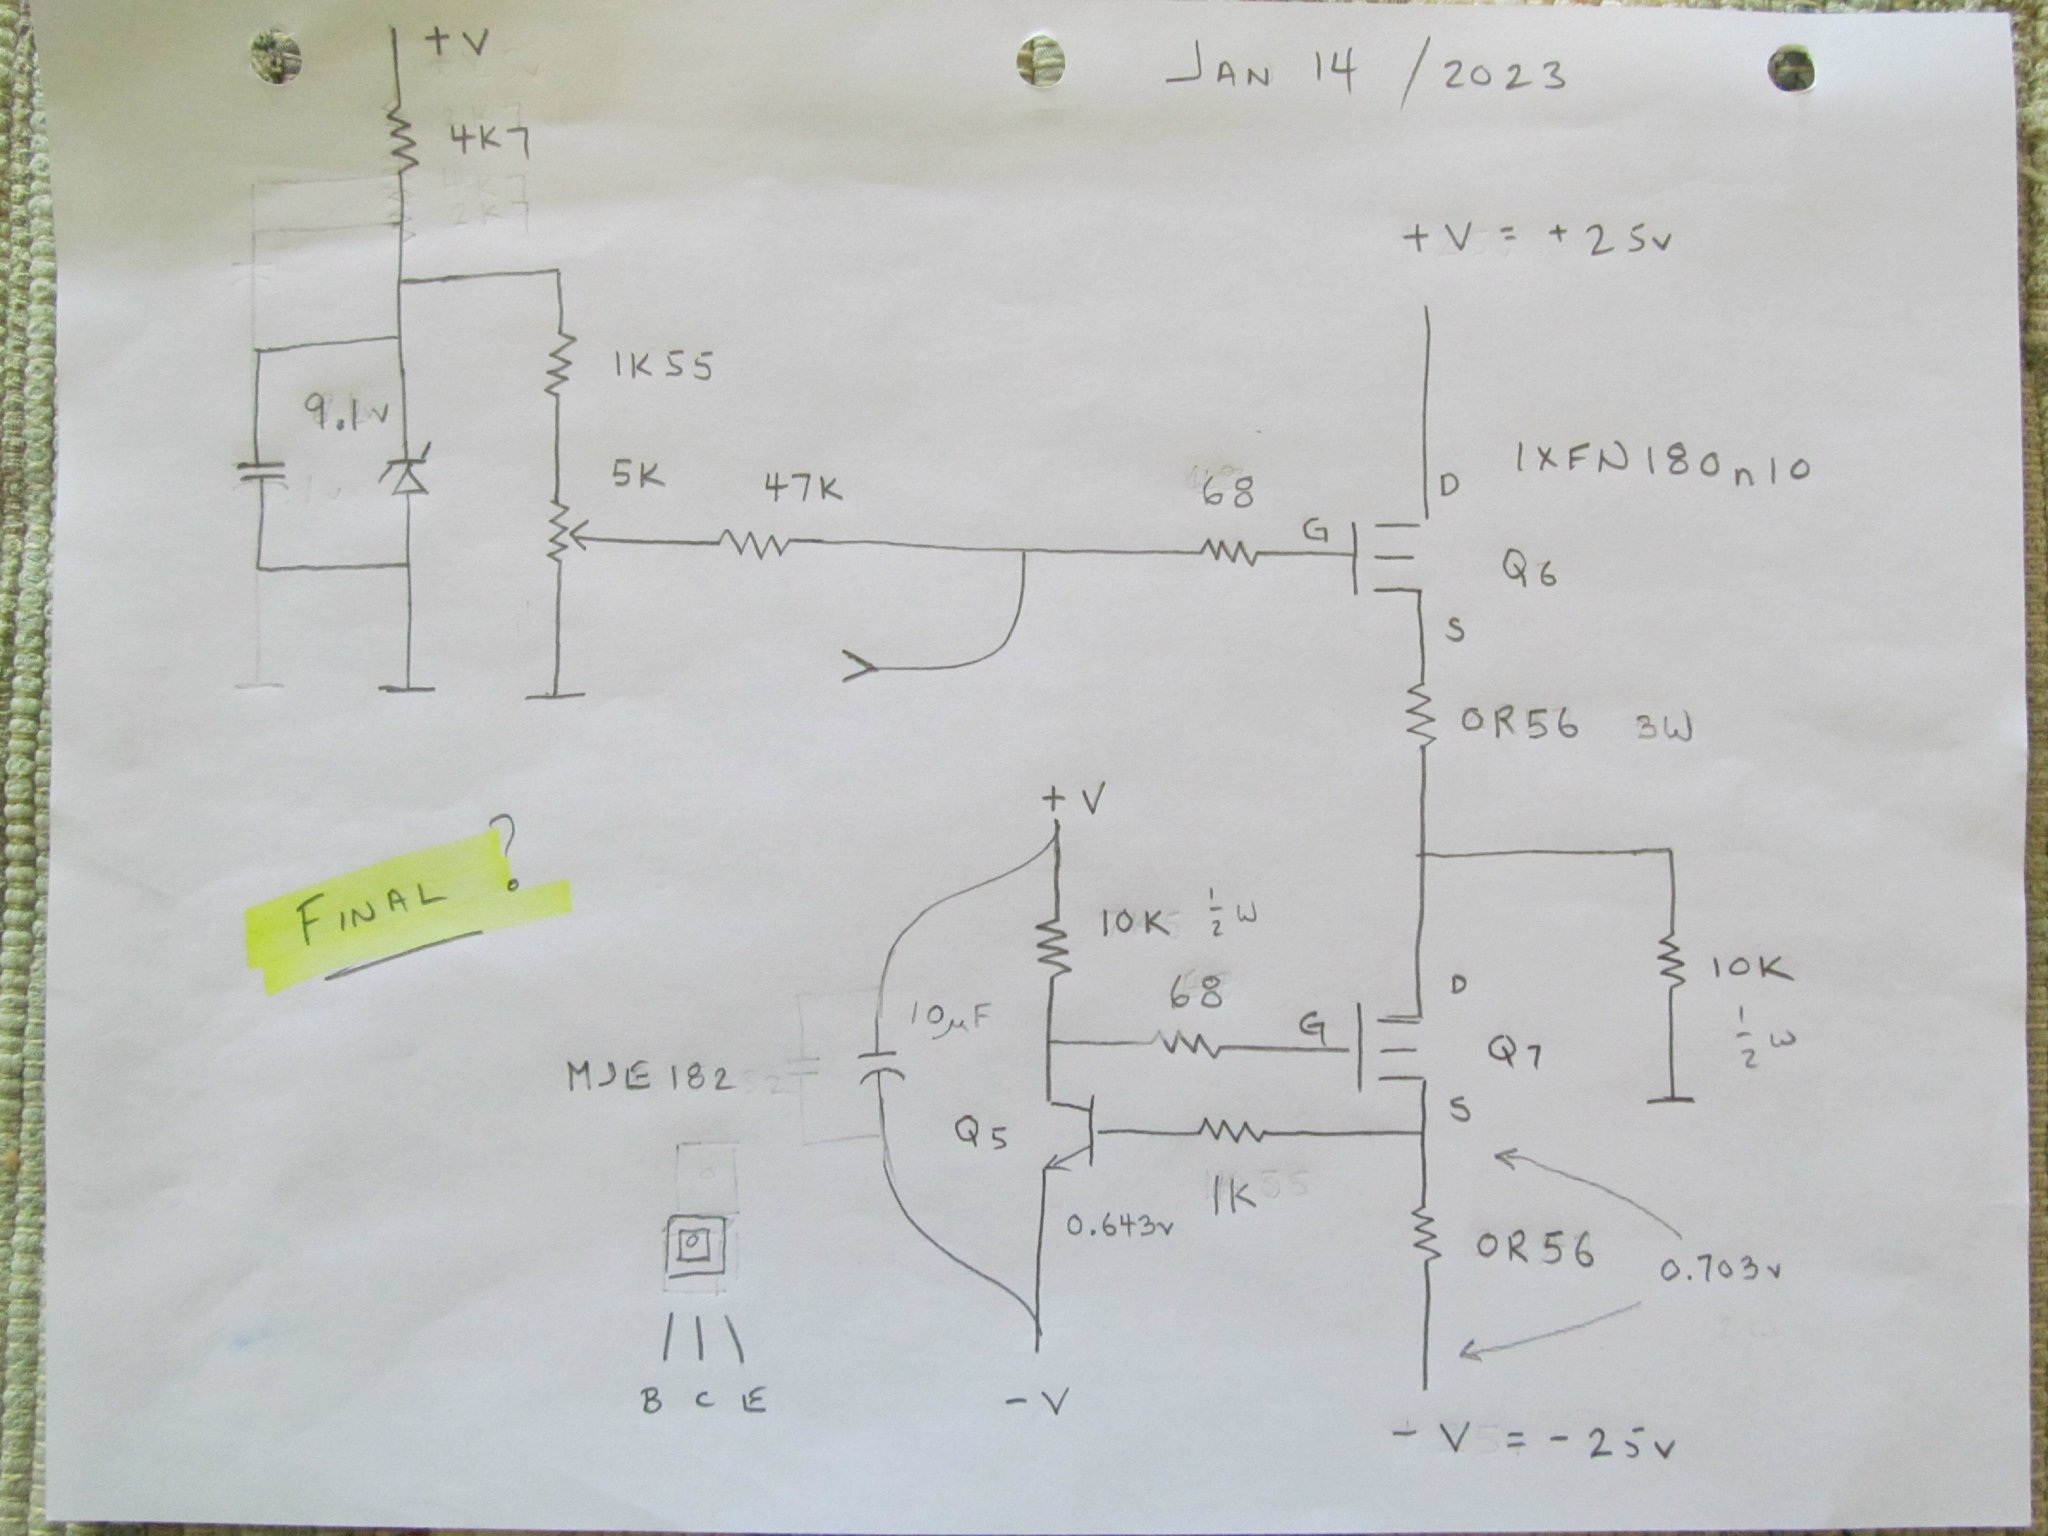 +V
JAN 14 / 2023
4K7
+V = +25v
1K55
9.1v
5K
47K
68
G
D
IXFN180n10
Q6
S
0R56 3W
+V
FINAL ?
10K ½ W
68
10µF
G
D
10K
½ W
Q7
MJE 182
Q5
S
1K
0.643v
0R56
0.703v
B C E
-V
-V = -25v